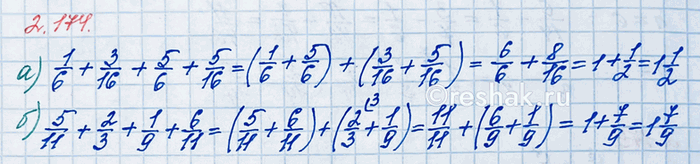 2.174.
а) 1/6 + 3/16 + 5/6 + 5/16 = (1/6 + 5/6) + (3/16 + 5/16) = 6/6 + 8/16 = 1 + 1/2 = 1 1/2
б) 5/11 + 2/3 + 1/9 + 6/11 = (5/11 + 6/11) + (2/3 ⁽³ + 1/9) = 11/11 + (6/9 + 1/9) = 1 + 7/9 = 1 7/9
reshak.ru